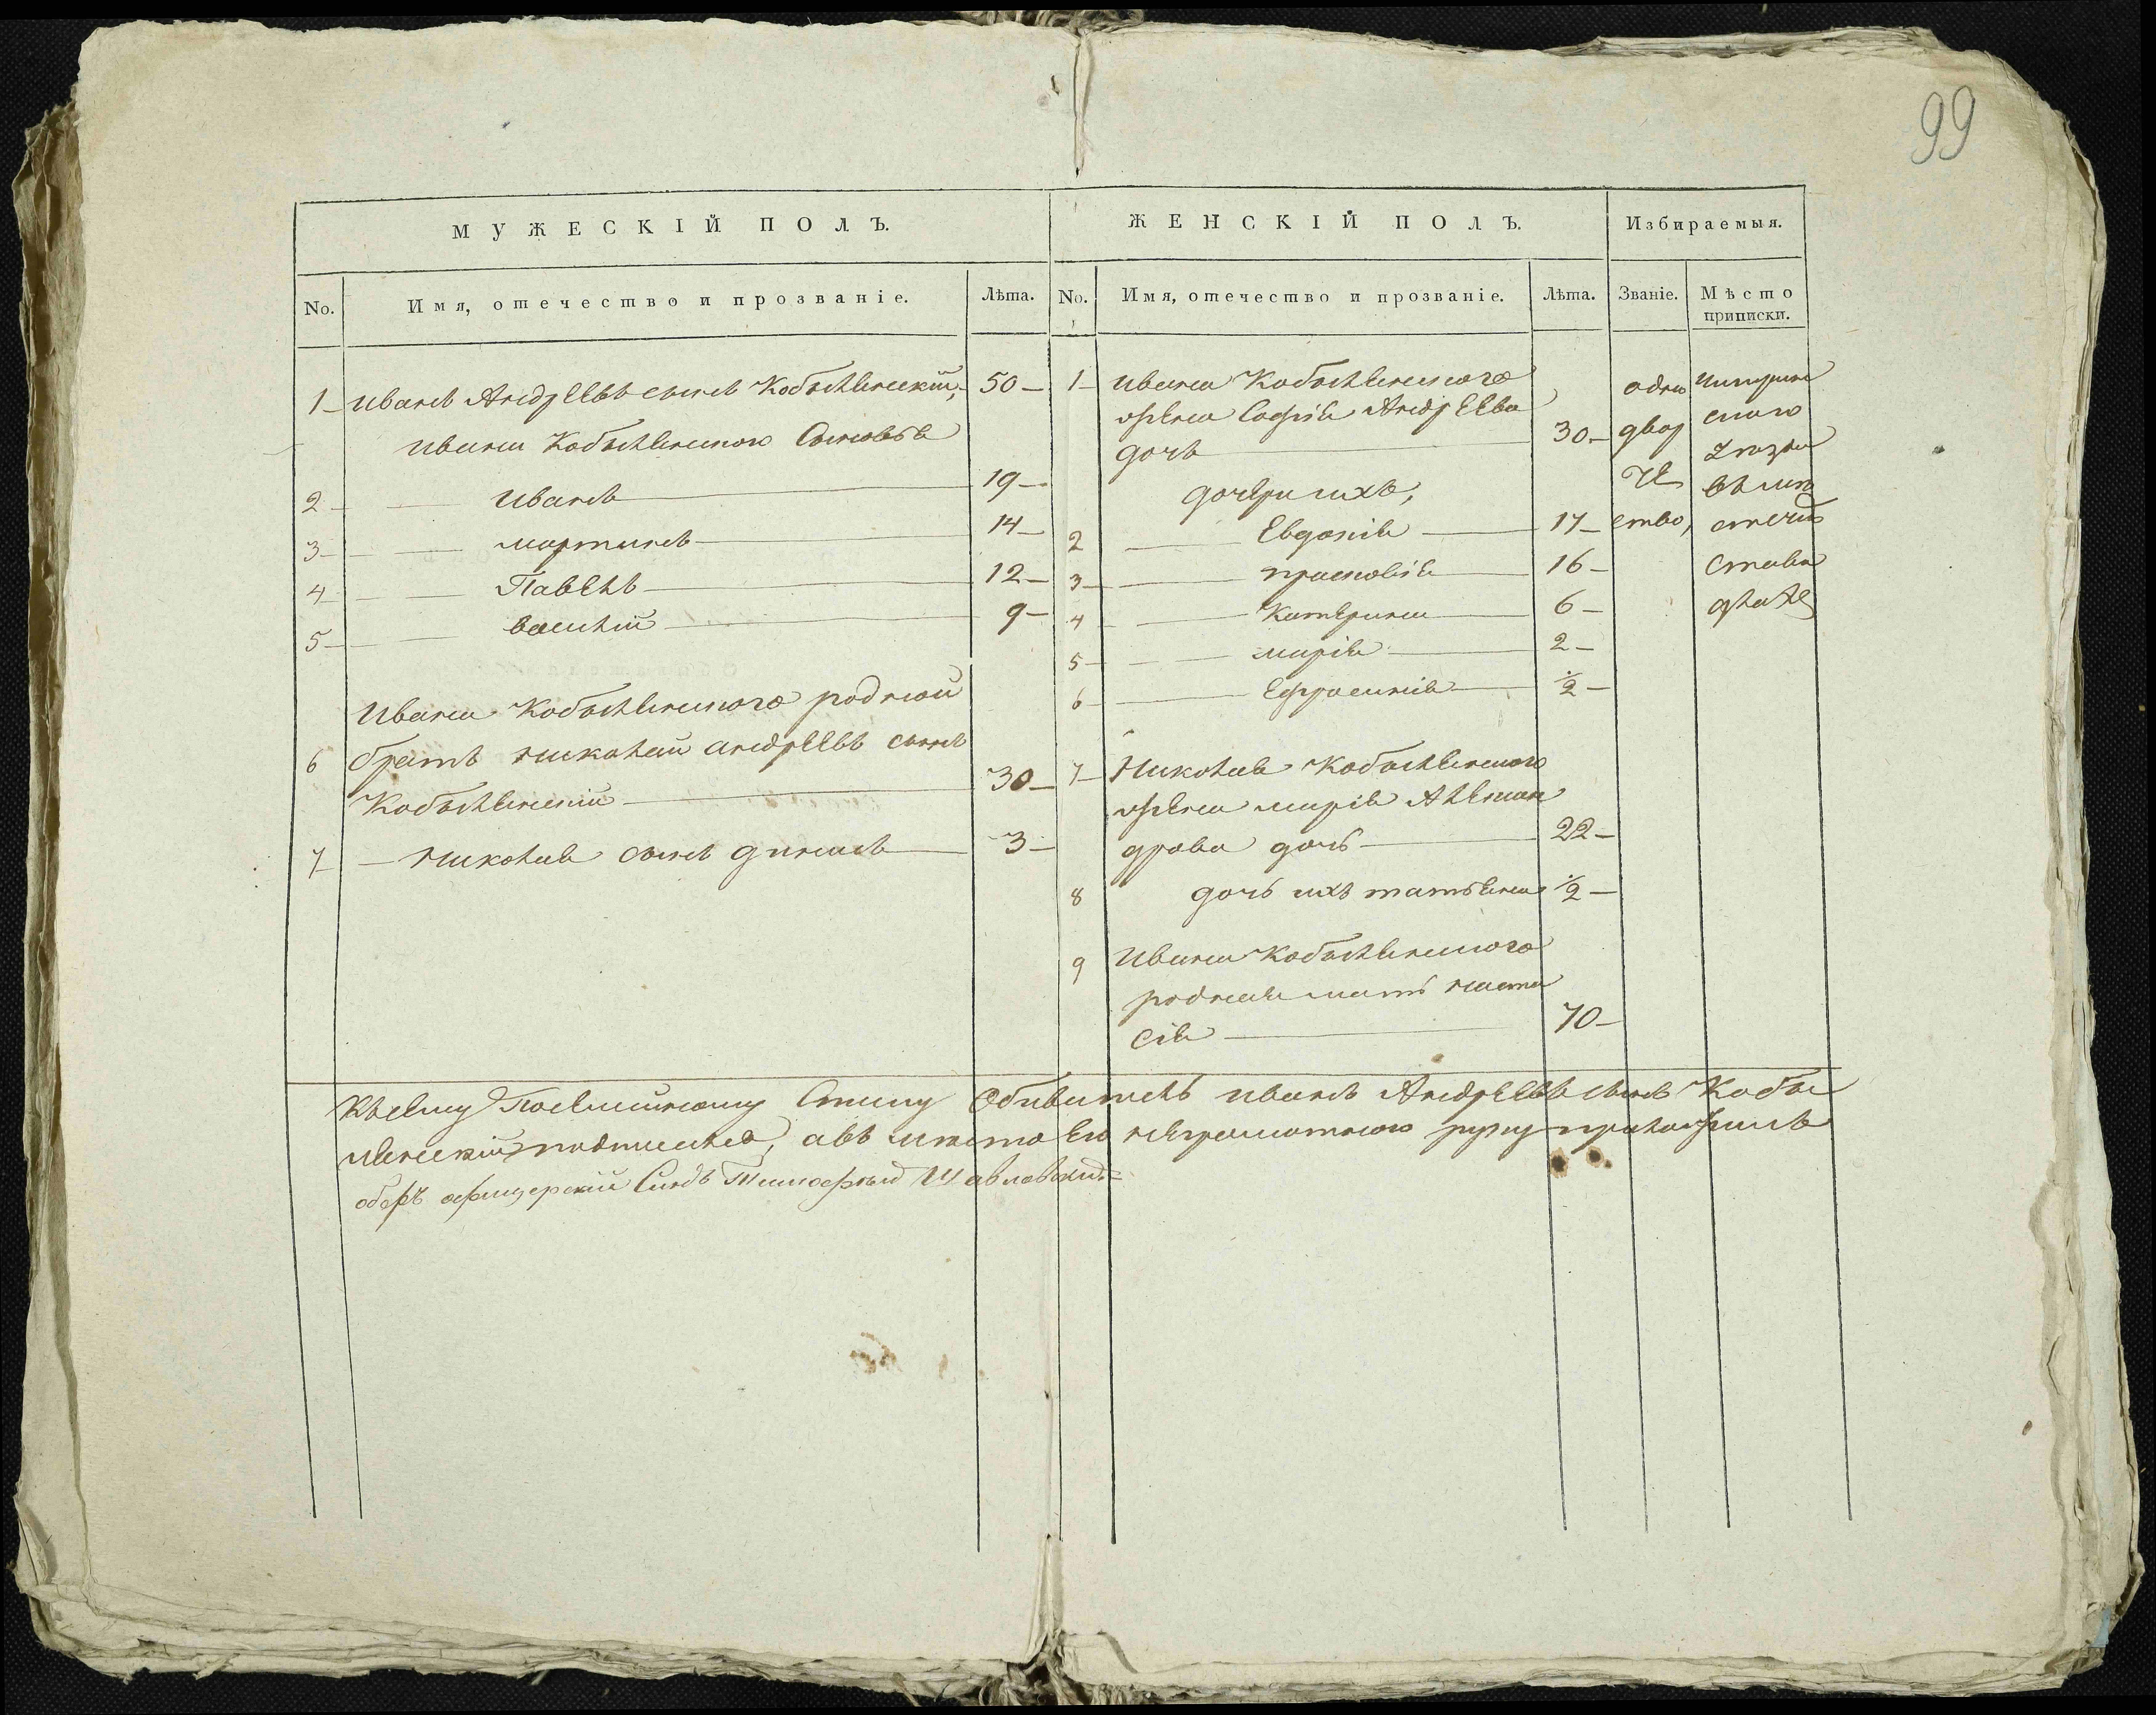 99
МУЖЕСКІЙ ПОЛЪ.
No.
Имя, отечество и прозваніе.
Лѣта.
1 Иванъ Андреевъ сынъ Кобылянский, 50
Ивана Кобылянского Сыновья
2 Иванъ 19
3 мартинъ 14
4 Павелъ 12
5 василий 9
Ивана Кобылянского родной
6 братъ николай андреевъ сынъ
Кобылянский 30
7 николая сынъ 3
ЖЕНСКІЙ ПОЛЪ.
No.
Имя, отечество и прозваніе.
Лѣта.
1 Ивана Кобылянского
жена Софія Андреева
дочь 30
дочери ихъ,
2 Евдокія 17
3 прасковія 16
4 Катерина 6
5 марія 2
6 Ефросинія 1/2
7 Николая Кобылянского
жена марія Алексан
дрова дочь 22
8 дочь ихъ татьяна 1/2
9 Ивана Кобылянского
родная мать наста
сія 70
Избираемыя.
Званіе.
одно
двор
че
ство,
Мѣсто
приписки.
ского
Къ сему Посемейному Списку Обиватель иванъ Андреевъ сынъ Кобы
лянский подписался, а въ место его неграмотного руку приложилъ
оберъ офицерский Синъ